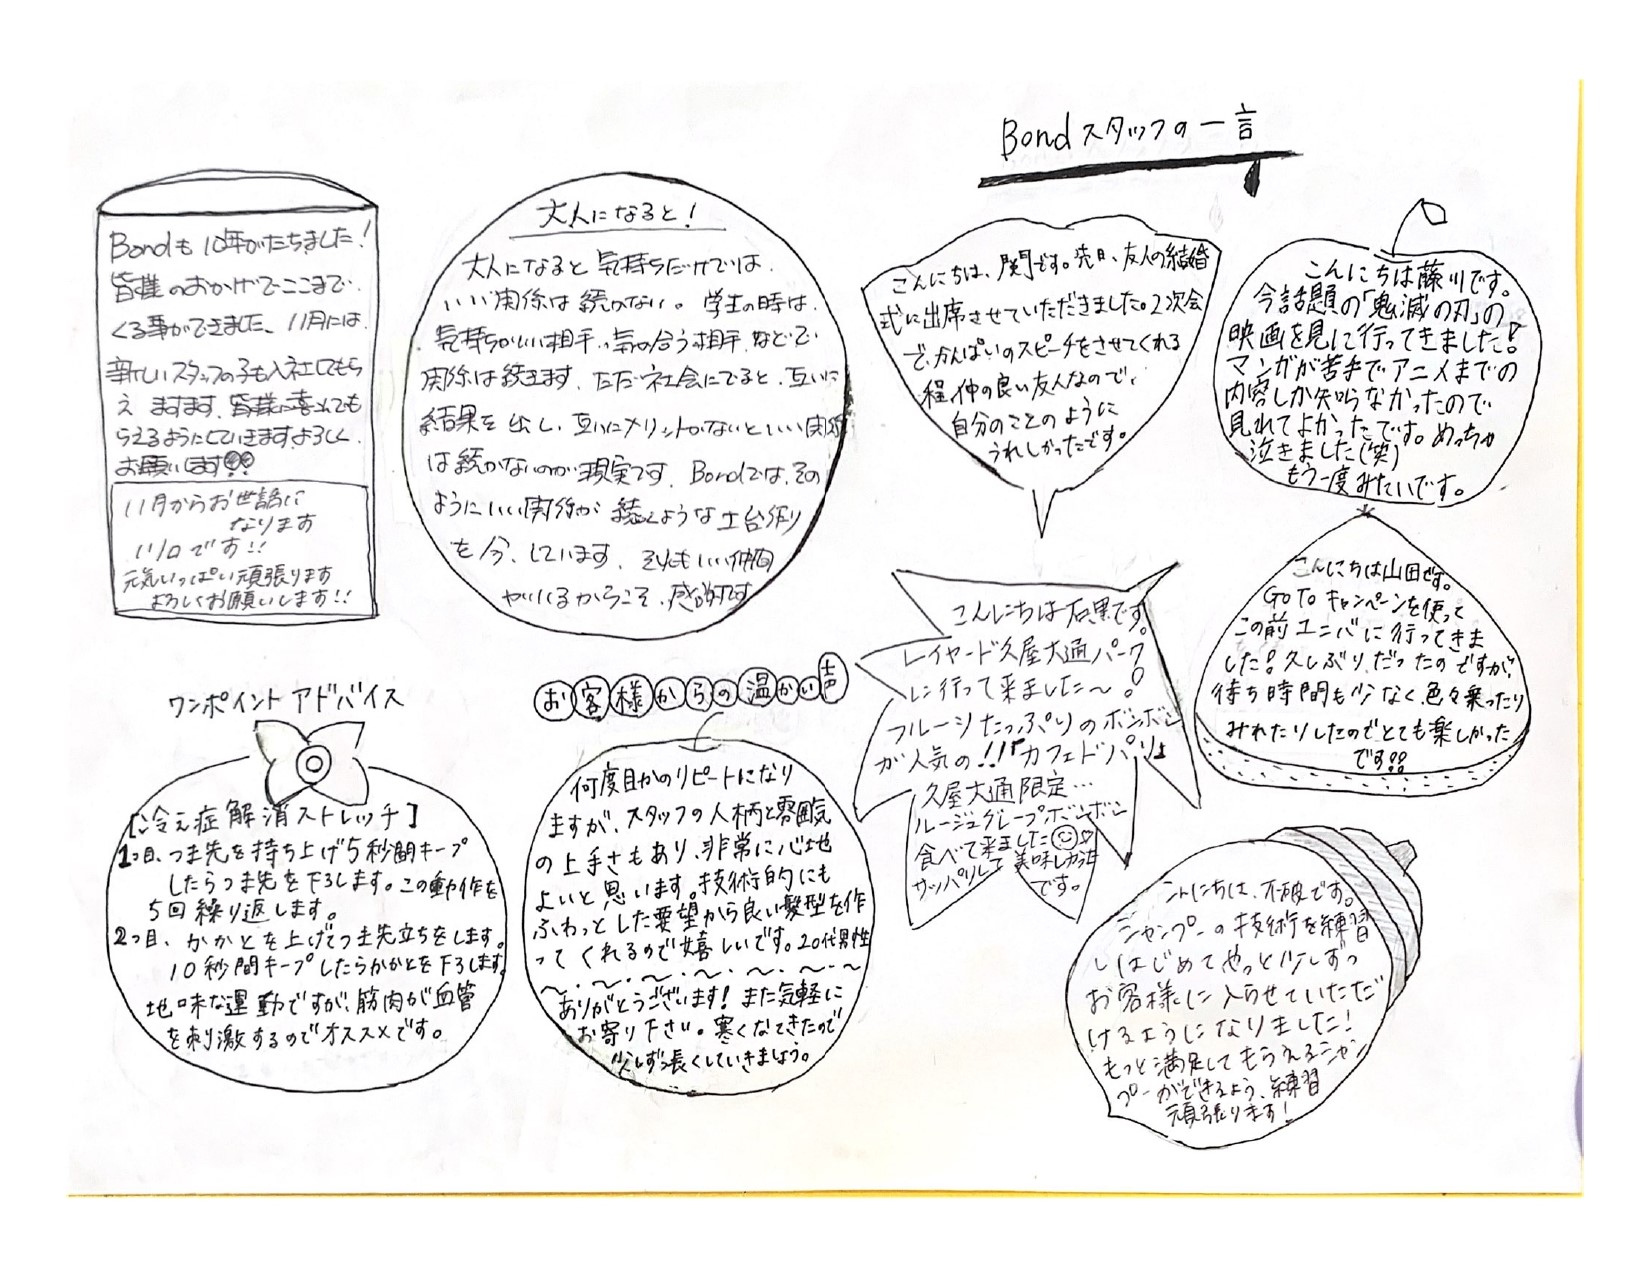 Bondスタッフの一言
Bondも10年がたちました!
皆様のおかげでここまで
くる事ができました、11月には
新しいスタッフの子も入社してもら
え ますます、皆様に喜んでも
らえるようにしていきます。よろしく
お願いします!!
11月からお世話に
なります
です!!
元気いっぱい頑張ります
よろしくお願いします!!
大人になると!
大人になると気持ちだけでは、
いい関係は続かない。学生の時は、
気持ちがいい相手、気の合う相手、などで
関係は続きます、ただ社会にでると、互いに
結果を出し、互いにメリットがないといい関係
は続かないのが現実です、Bondでは、その
ようにいい関係が続くような土台作り
を今、しています、それもいい仲間
がいるからこそ、感謝です
こんにちは、関です。先日、友人の結婚
式に出席させていただきました。2次会
で、かんぱいのスピーチをさせてくれる
程、仲の良い友人なので、
自分のことのように
うれしかったです。
こんにちは藤川です。
今話題の「鬼滅の刃」の
映画を見に行ってきました!
マンガが苦手でアニメまでの
内容しか知らなかったので
見れてよかったです。めっちゃ
泣きました(笑)
もう一度みたいです。
こんにちは石黒です。
レイヤード久屋大通パーク
に行って来ました〜!
フルーツたっぷりのボンボン
が人気の!!「カフェドパリ」
久屋大通限定…
ルージュグレープボンボン
食べて来ました☺♡
サッパリして美味しかった
です。
こんにちは山田です。
GoToキャンペーンを使って
この前ユニバに行ってきま
した!久しぶりだったのですが、
待ち時間も少なく、色々乗ったり
みれたりしたのでとても楽しかった
です!!
ワンポイントアドバイス
[冷え症解消ストレッチ]
1つ目、つま先を持ち上げ5秒間キープ
したらつま先を下ろします。この動作を
5回繰り返します。
2つ目、かかとを上げてつま先立ちをします。
10秒間キープしたらかかとを下ろします。
地味な運動ですが、筋肉が血管
を刺激するのでオススメです。
お客様からの温かい声
何度目かのリピートになり
ますが、スタッフの人柄と雰囲気
の上手さもあり、非常に心地
よいと思います。技術的にも
ふわっとした要望から良い髪型を作
ってくれるので嬉しいです。20代男性
ありがとうございます!また気軽に
お寄り下さい。寒くなてきたので
少しずつ長くしていきましょう。
こんにちは、不破です。
シャンプーの技術を練習
しはじめてやっと少しずつ
お客様に入らせていただ
けるようになりました!
もっと満足してもらえるシャン
プーができるよう、練習
頑張ります!